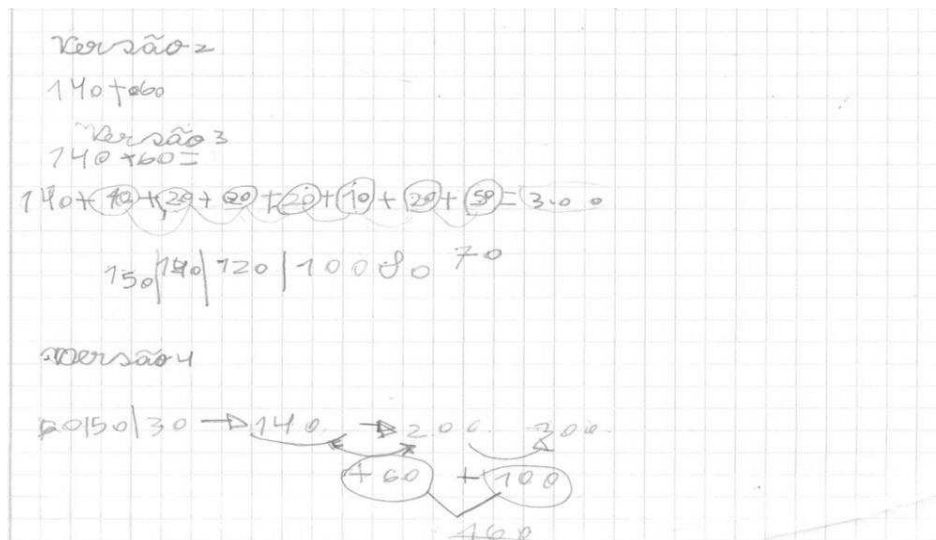 Versão 2
140+060
Versão 3
140+60=
140+10+20+20+20+10+20+50=300
150|140|120|100 80 70
Versão 4
60|50|30 → 140 → 200 300
+60 +100
160